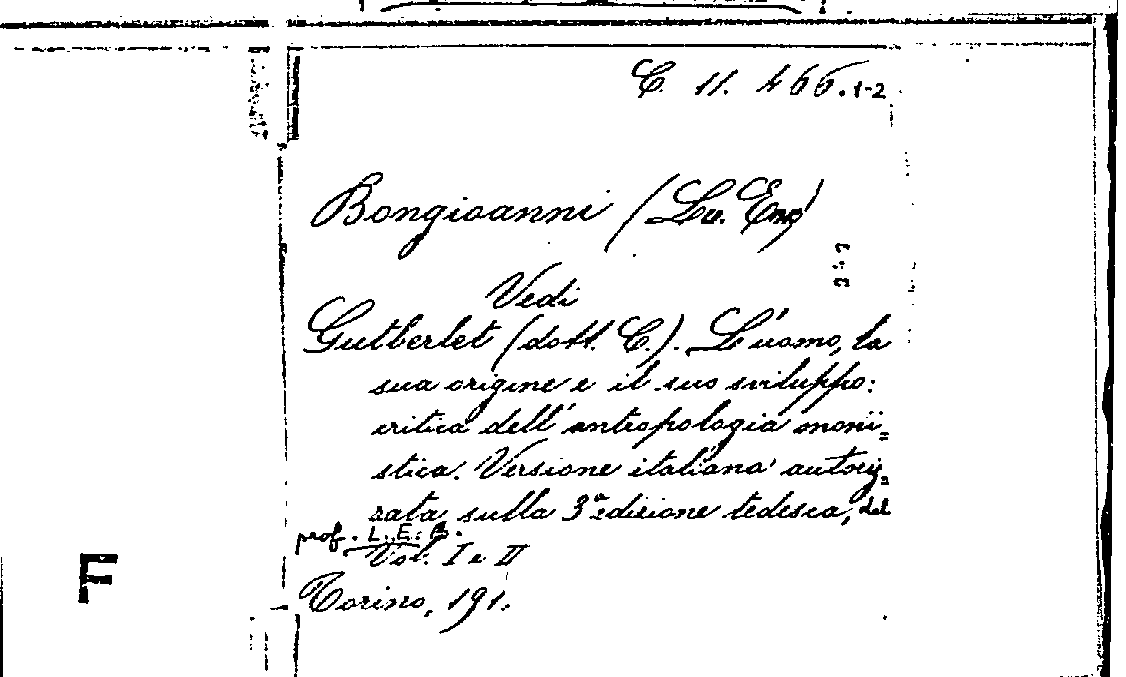 C. 11. 466.1-2
Bongioanni (Lu. Enr)
Vedi
Gutberlet (dott. C.). L'uomo, la
sua origine e il suo sviluppo:
critica dell'antropologia moni=
stica. Versione italiana autoriz=
zata sulla 3ª edizione tedesca, del
prof. L. E. B.
Vol. I e II
F
Torino, 191.